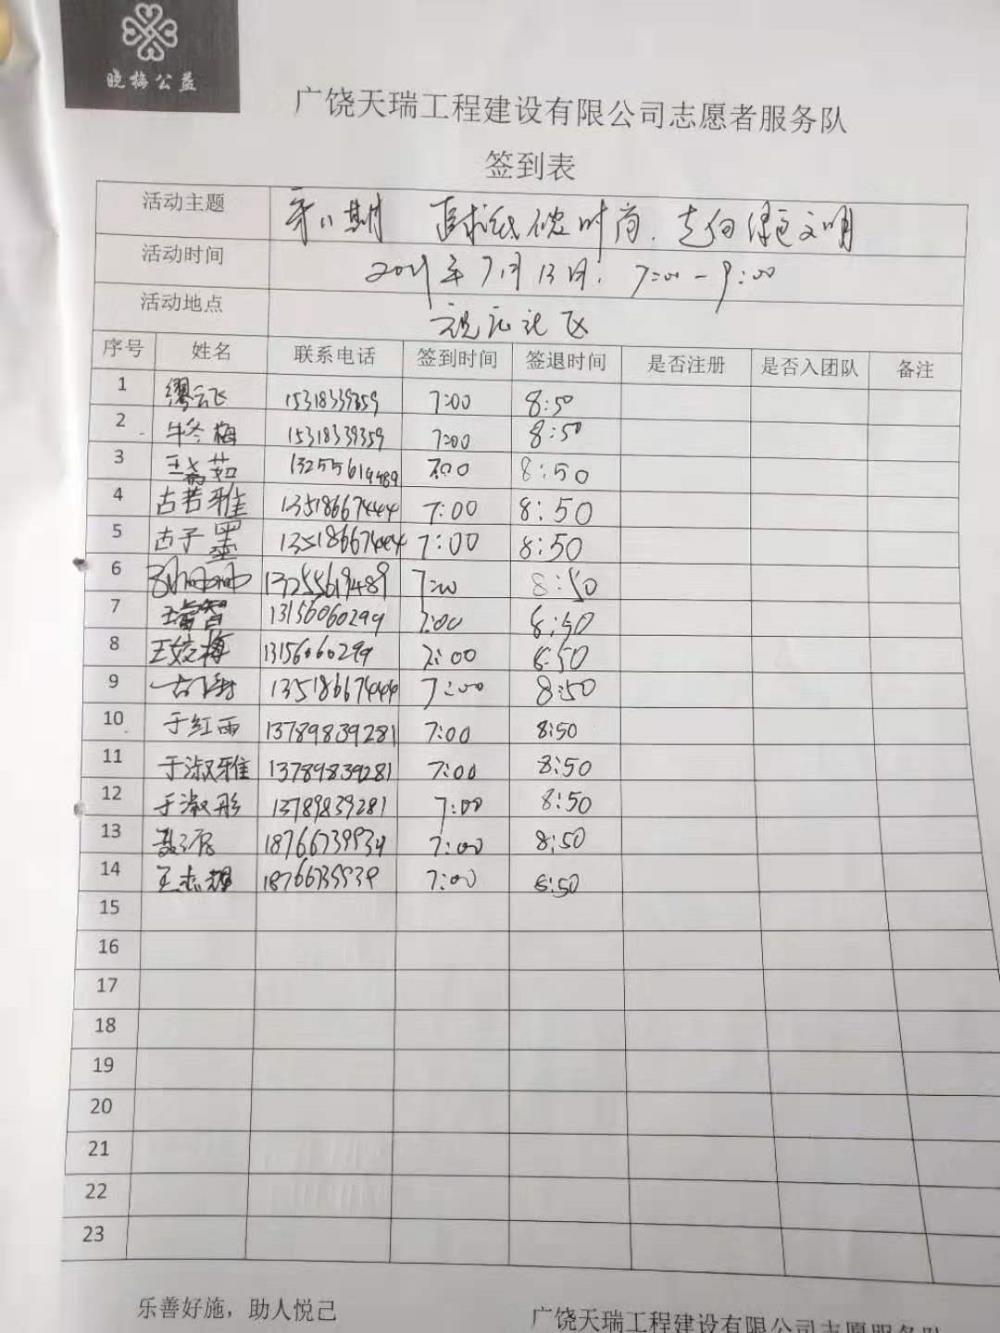 晓梅公益
广饶天瑞工程建设有限公司志愿者服务队
签到表
活动主题 第八期 追求低碳时尚.走向绿色文明
活动时间 7月13日. 7:00-9:00
活动地点
序号 姓名 联系电话 签到时间 签退时间 是否注册 是否入团队 备注
1 缪云飞 15318339359 7:00 8:50
2 牛冬梅 15318339359 7:00 8:50
3 13255619489 7:00 8:50
4 古若雅 13518667444 7:00 8:50
5 古子墨 13518667444 7:00 8:50
6 13255619489 7:00 8:50
7 13156060299 7:00 8:50
8 13156060299 7:00 8:50
9 13518667444 7:00 8:50
10 于红雨 13789839281 7:00 8:50
11 于淑雅 13789839281 7:00 8:50
12 于淑彤 13789839281 7:00 8:50
13 18766739934 7:00 8:50
14 王志耀 18766739934 7:00 8:50
15
16
17
18
19
20
21
22
23
乐善好施，助人悦己 广饶天瑞工程建设有限公司志愿服务队